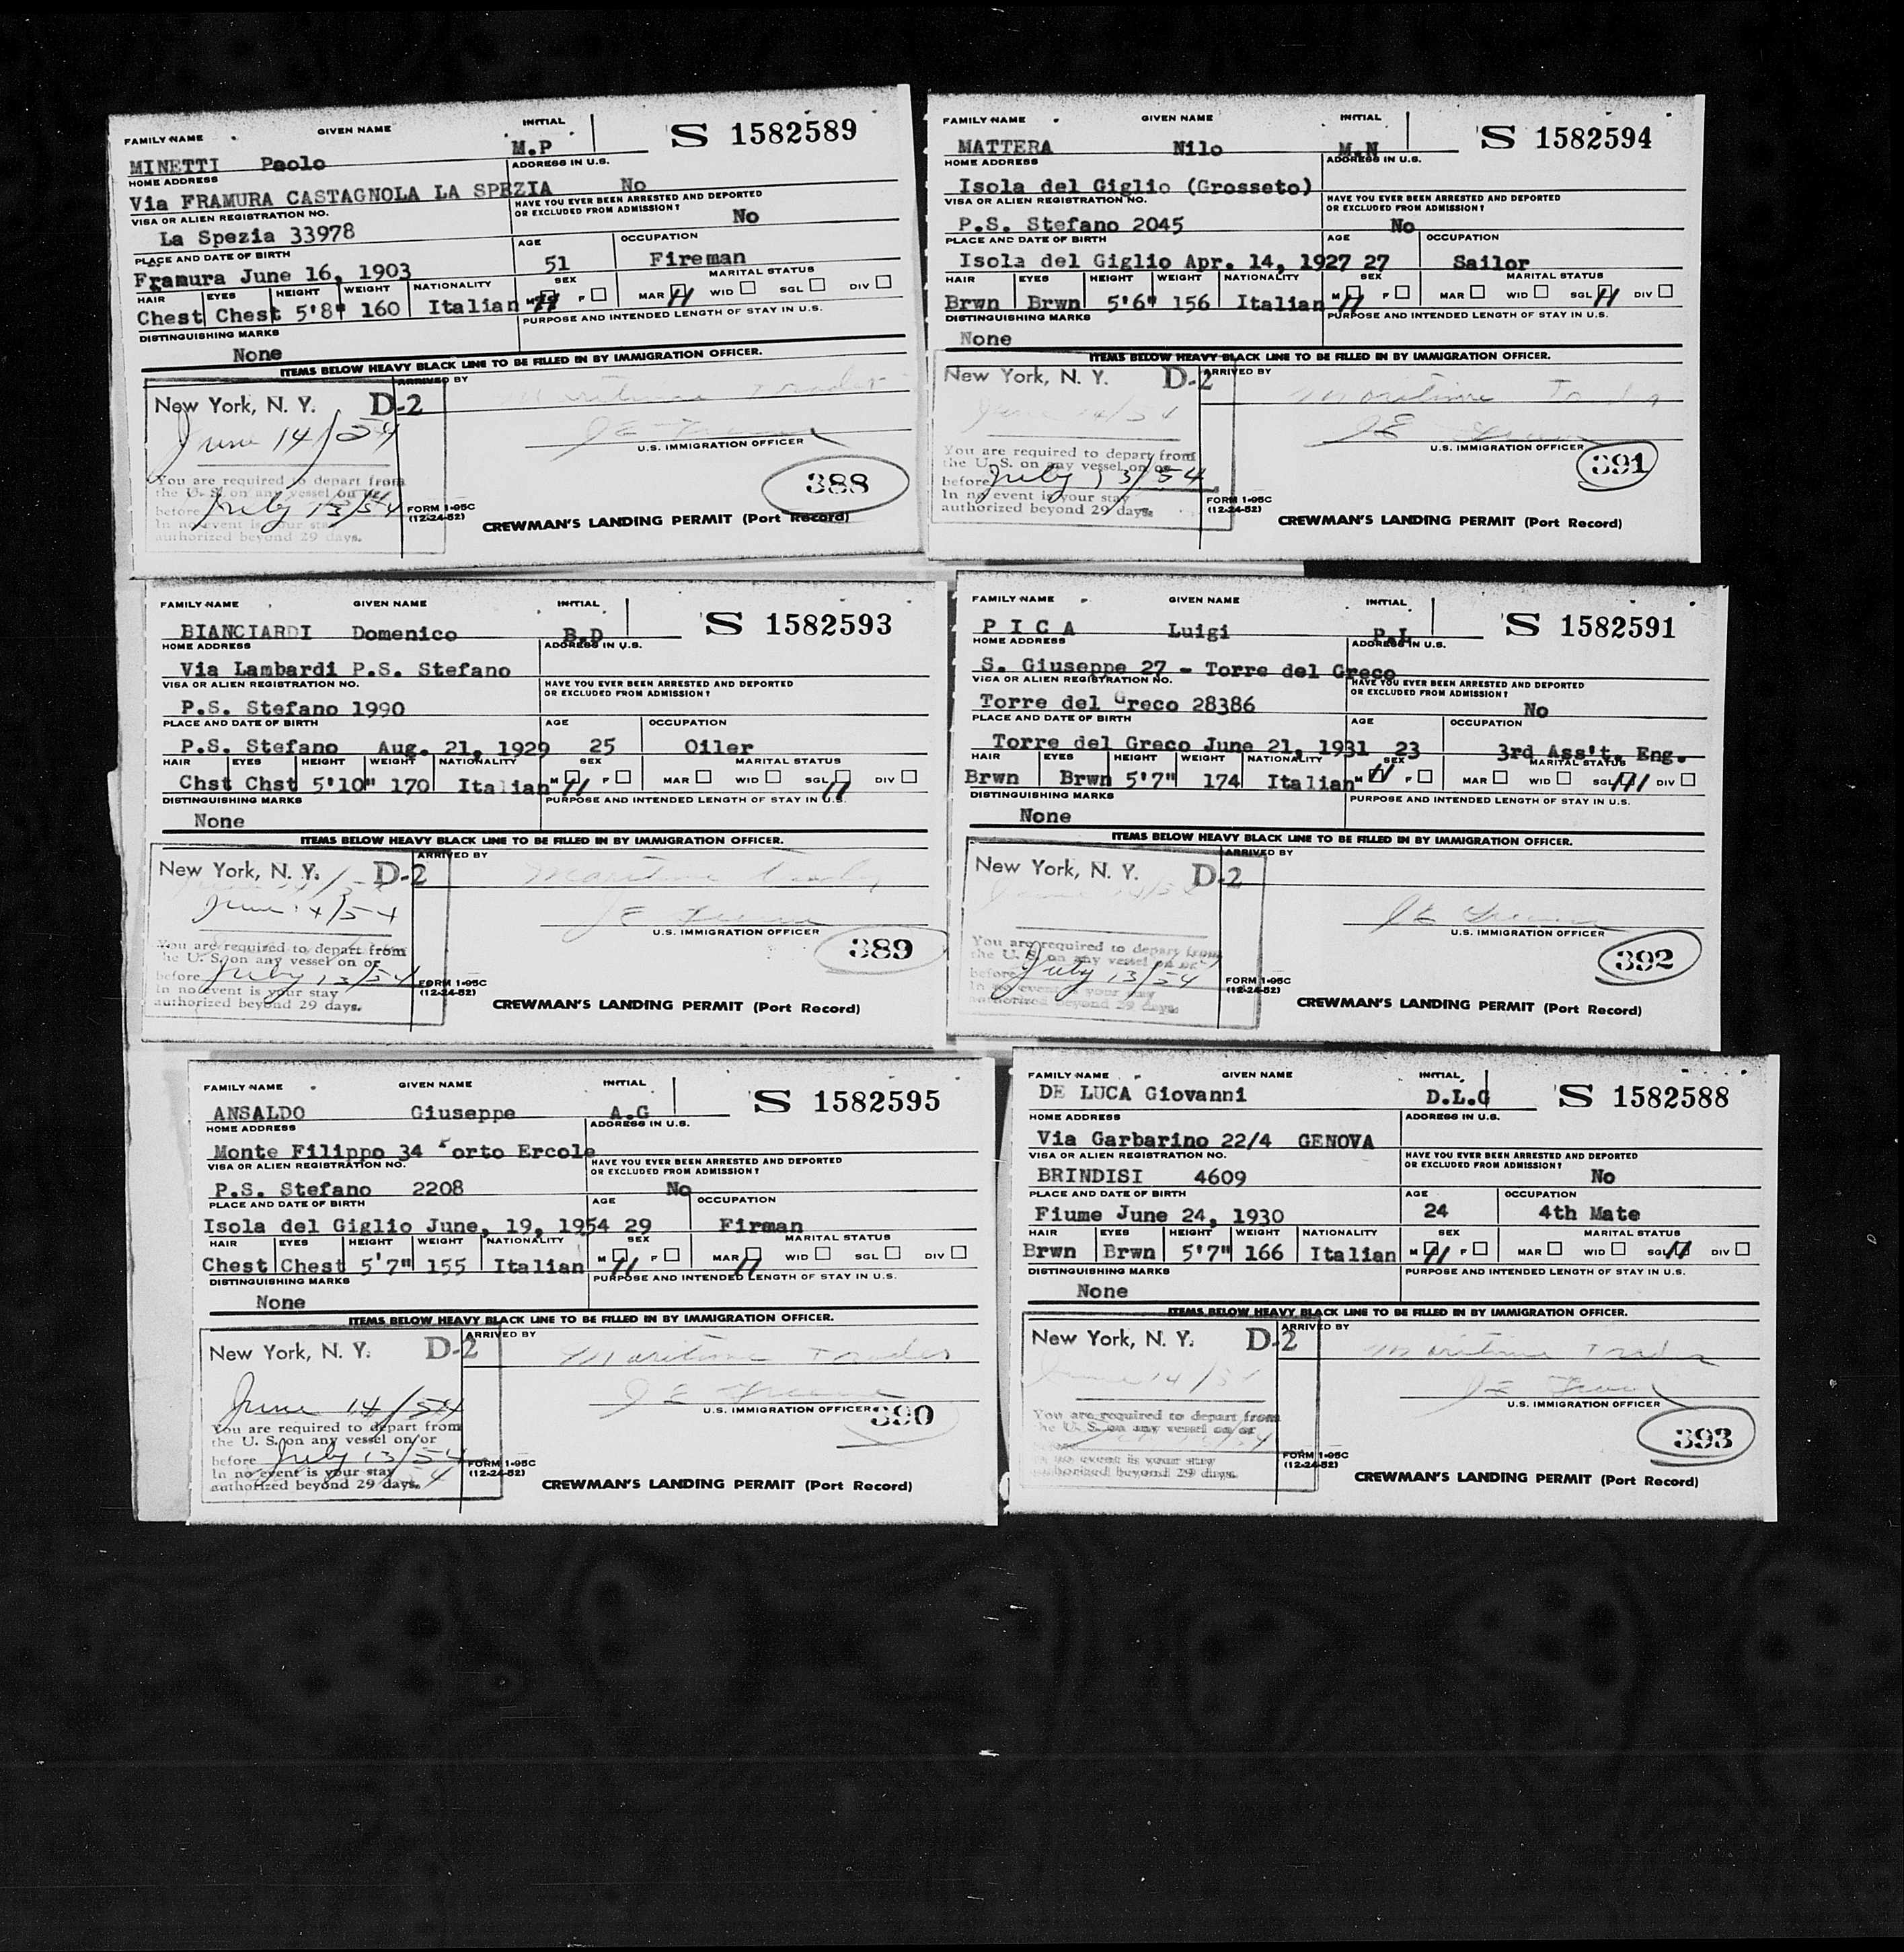 FAMILY NAME GIVEN NAME INITIAL
S 1582589
MINETTI Paolo M.P
HOME ADDRESS ADDRESS IN U.S.
Via FRAMURA CASTAGNOLA LA SPEZIA No
VISA OR ALIEN REGISTRATION NO. HAVE YOU EVER BEEN ARRESTED AND DEPORTED
OR EXCLUDED FROM ADMISSION?
La Spezia 33978 No
PLACE AND DATE OF BIRTH AGE OCCUPATION
Framura June 16, 1903 51 Fireman
HAIR EYES HEIGHT WEIGHT NATIONALITY SEX MARITAL STATUS
Chest Chest 5'8" 160 Italian M F MAR WID SGL DIV
DISTINGUISHING MARKS PURPOSE AND INTENDED LENGTH OF STAY IN U.S.
None
ITEMS BELOW HEAVY BLACK LINE TO BE FILLED IN BY IMMIGRATION OFFICER.
ARRIVED BY
Maritime Trader
New York, N. Y. D-2
June 14/54
U.S. IMMIGRATION OFFICER
You are required to depart from
the U. S. on any vessel on or
before July 13/54
In no event is your stay
authorized beyond 29 days.
388
FORM I-95C
(12-24-52)
CREWMAN'S LANDING PERMIT (Port Record)
FAMILY NAME GIVEN NAME INITIAL
S 1582594
MATTERA Nilo M.N
HOME ADDRESS ADDRESS IN U.S.
Isola del Giglio (Grosseto)
VISA OR ALIEN REGISTRATION NO. HAVE YOU EVER BEEN ARRESTED AND DEPORTED
OR EXCLUDED FROM ADMISSION?
P.S. Stefano 2045 No
PLACE AND DATE OF BIRTH AGE OCCUPATION
Isola del Giglio Apr. 14, 1927 27 Sailor
HAIR EYES HEIGHT WEIGHT NATIONALITY SEX MARITAL STATUS
Brwn Brwn 5'6" 156 Italian M F MAR WID SGL DIV
DISTINGUISHING MARKS PURPOSE AND INTENDED LENGTH OF STAY IN U.S.
None
ITEMS BELOW HEAVY BLACK LINE TO BE FILLED IN BY IMMIGRATION OFFICER.
New York, N. Y. D-2 ARRIVED BY
Maritime Trader
June 14/54
U.S. IMMIGRATION OFFICER
You are required to depart from
the U. S. on any vessel on or
before July 13/54
In no event is your stay
authorized beyond 29 days.
391
FORM I-95C
(12-24-52)
CREWMAN'S LANDING PERMIT (Port Record)
FAMILY NAME GIVEN NAME INITIAL
S 1582593
BIANCIARDI Domenico B.D
HOME ADDRESS ADDRESS IN U.S.
Via Lambardi P.S. Stefano
VISA OR ALIEN REGISTRATION NO. HAVE YOU EVER BEEN ARRESTED AND DEPORTED
OR EXCLUDED FROM ADMISSION?
P.S. Stefano 1990
PLACE AND DATE OF BIRTH AGE OCCUPATION
P.S. Stefano Aug. 21, 1929 25 Oiler
HAIR EYES HEIGHT WEIGHT NATIONALITY SEX MARITAL STATUS
Chst Chst 5'10" 170 Italian M F MAR WID SGL DIV
DISTINGUISHING MARKS PURPOSE AND INTENDED LENGTH OF STAY IN U.S.
None
ITEMS BELOW HEAVY BLACK LINE TO BE FILLED IN BY IMMIGRATION OFFICER.
New York, N. Y. D-2 ARRIVED BY
Maritime Trader
June 14/54
U.S. IMMIGRATION OFFICER
You are required to depart from
the U. S. on any vessel on or
before July 13/54
In no event is your stay
authorized beyond 29 days.
389
FORM I-95C
(12-24-52)
CREWMAN'S LANDING PERMIT (Port Record)
FAMILY NAME GIVEN NAME INITIAL
S 1582591
PICA Luigi P.L
HOME ADDRESS ADDRESS IN U.S.
S. Giuseppe 27 - Torre del Greco
VISA OR ALIEN REGISTRATION NO. HAVE YOU EVER BEEN ARRESTED AND DEPORTED
OR EXCLUDED FROM ADMISSION?
Torre del Greco 28386 No
PLACE AND DATE OF BIRTH AGE OCCUPATION
Torre del Greco June 21, 1931 23 3rd Ass't. Eng.
HAIR EYES HEIGHT WEIGHT NATIONALITY SEX MARITAL STATUS
Brwn Brwn 5'7" 174 Italian M F MAR WID SGL DIV
DISTINGUISHING MARKS PURPOSE AND INTENDED LENGTH OF STAY IN U.S.
None
ITEMS BELOW HEAVY BLACK LINE TO BE FILLED IN BY IMMIGRATION OFFICER.
New York, N. Y. D-2 ARRIVED BY
June 14/54
U.S. IMMIGRATION OFFICER
You are required to depart from
the U. S. on any vessel on or
before July 13/54
In no event is your stay
authorized beyond 29 days.
392
FORM I-95C
(12-24-52)
CREWMAN'S LANDING PERMIT (Port Record)
FAMILY NAME GIVEN NAME INITIAL
S 1582595
ANSALDO Giuseppe A.G
HOME ADDRESS ADDRESS IN U.S.
Monte Filippo 34 Porto Ercole
VISA OR ALIEN REGISTRATION NO. HAVE YOU EVER BEEN ARRESTED AND DEPORTED
OR EXCLUDED FROM ADMISSION?
P.S. Stefano 2208 No
PLACE AND DATE OF BIRTH AGE OCCUPATION
Isola del Giglio June, 19, 1954 29 Firman
HAIR EYES HEIGHT WEIGHT NATIONALITY SEX MARITAL STATUS
Chest Chest 5'7" 155 Italian M F MAR WID SGL DIV
DISTINGUISHING MARKS PURPOSE AND INTENDED LENGTH OF STAY IN U.S.
None
ITEMS BELOW HEAVY BLACK LINE TO BE FILLED IN BY IMMIGRATION OFFICER.
New York, N. Y. D-2 ARRIVED BY
Maritime Trader
June 14/54
U.S. IMMIGRATION OFFICER
390
You are required to depart from
the U. S. on any vessel on or
before July 13/54
In no event is your stay
authorized beyond 29 days.
FORM I-95C
(12-24-52)
CREWMAN'S LANDING PERMIT (Port Record)
FAMILY NAME GIVEN NAME INITIAL
S 1582588
DE LUCA Giovanni D.L.G
HOME ADDRESS ADDRESS IN U.S.
Via Garbarino 22/4 GENOVA
VISA OR ALIEN REGISTRATION NO. HAVE YOU EVER BEEN ARRESTED AND DEPORTED
OR EXCLUDED FROM ADMISSION?
BRINDISI 4609 No
PLACE AND DATE OF BIRTH AGE OCCUPATION
Fiume June 24, 1930 24 4th Mate
HAIR EYES HEIGHT WEIGHT NATIONALITY SEX MARITAL STATUS
Brwn Brwn 5'7" 166 Italian M F MAR WID SGL DIV
DISTINGUISHING MARKS PURPOSE AND INTENDED LENGTH OF STAY IN U.S.
None
ITEMS BELOW HEAVY BLACK LINE TO BE FILLED IN BY IMMIGRATION OFFICER.
New York, N. Y. D-2 ARRIVED BY
Maritime Trader
June 14/54
U.S. IMMIGRATION OFFICER
You are required to depart from
the U. S. on any vessel on or
before
In no event is your stay
authorized beyond 29 days.
393
FORM I-95C
(12-24-52)
CREWMAN'S LANDING PERMIT (Port Record)